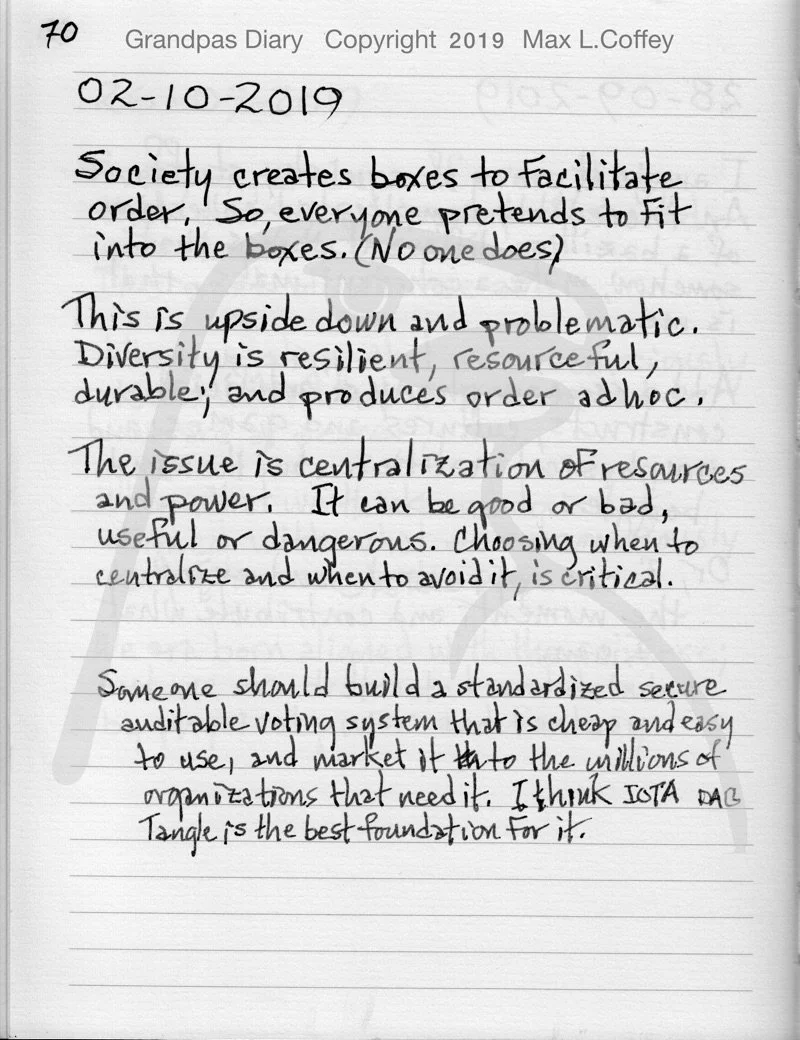 70
Grandpas Diary Copyright 2019 Max L.Coffey
02-10-2019
Society creates boxes to facilitate
order. So, everyone pretends to fit
into the boxes. (No one does)
This is upside down and problematic.
Diversity is resilient, resourceful,
durable; and produces order adhoc.
The issue is centralization of resources
and power. It can be good or bad,
useful or dangerous. Choosing when to
centralize and when to avoid it, is critical.
Someone should build a standardized secure
auditable voting system that is cheap and easy
to use, and market it to the millions of
organizations that need it. I think IOTA DAG
Tangle is the best foundation for it.